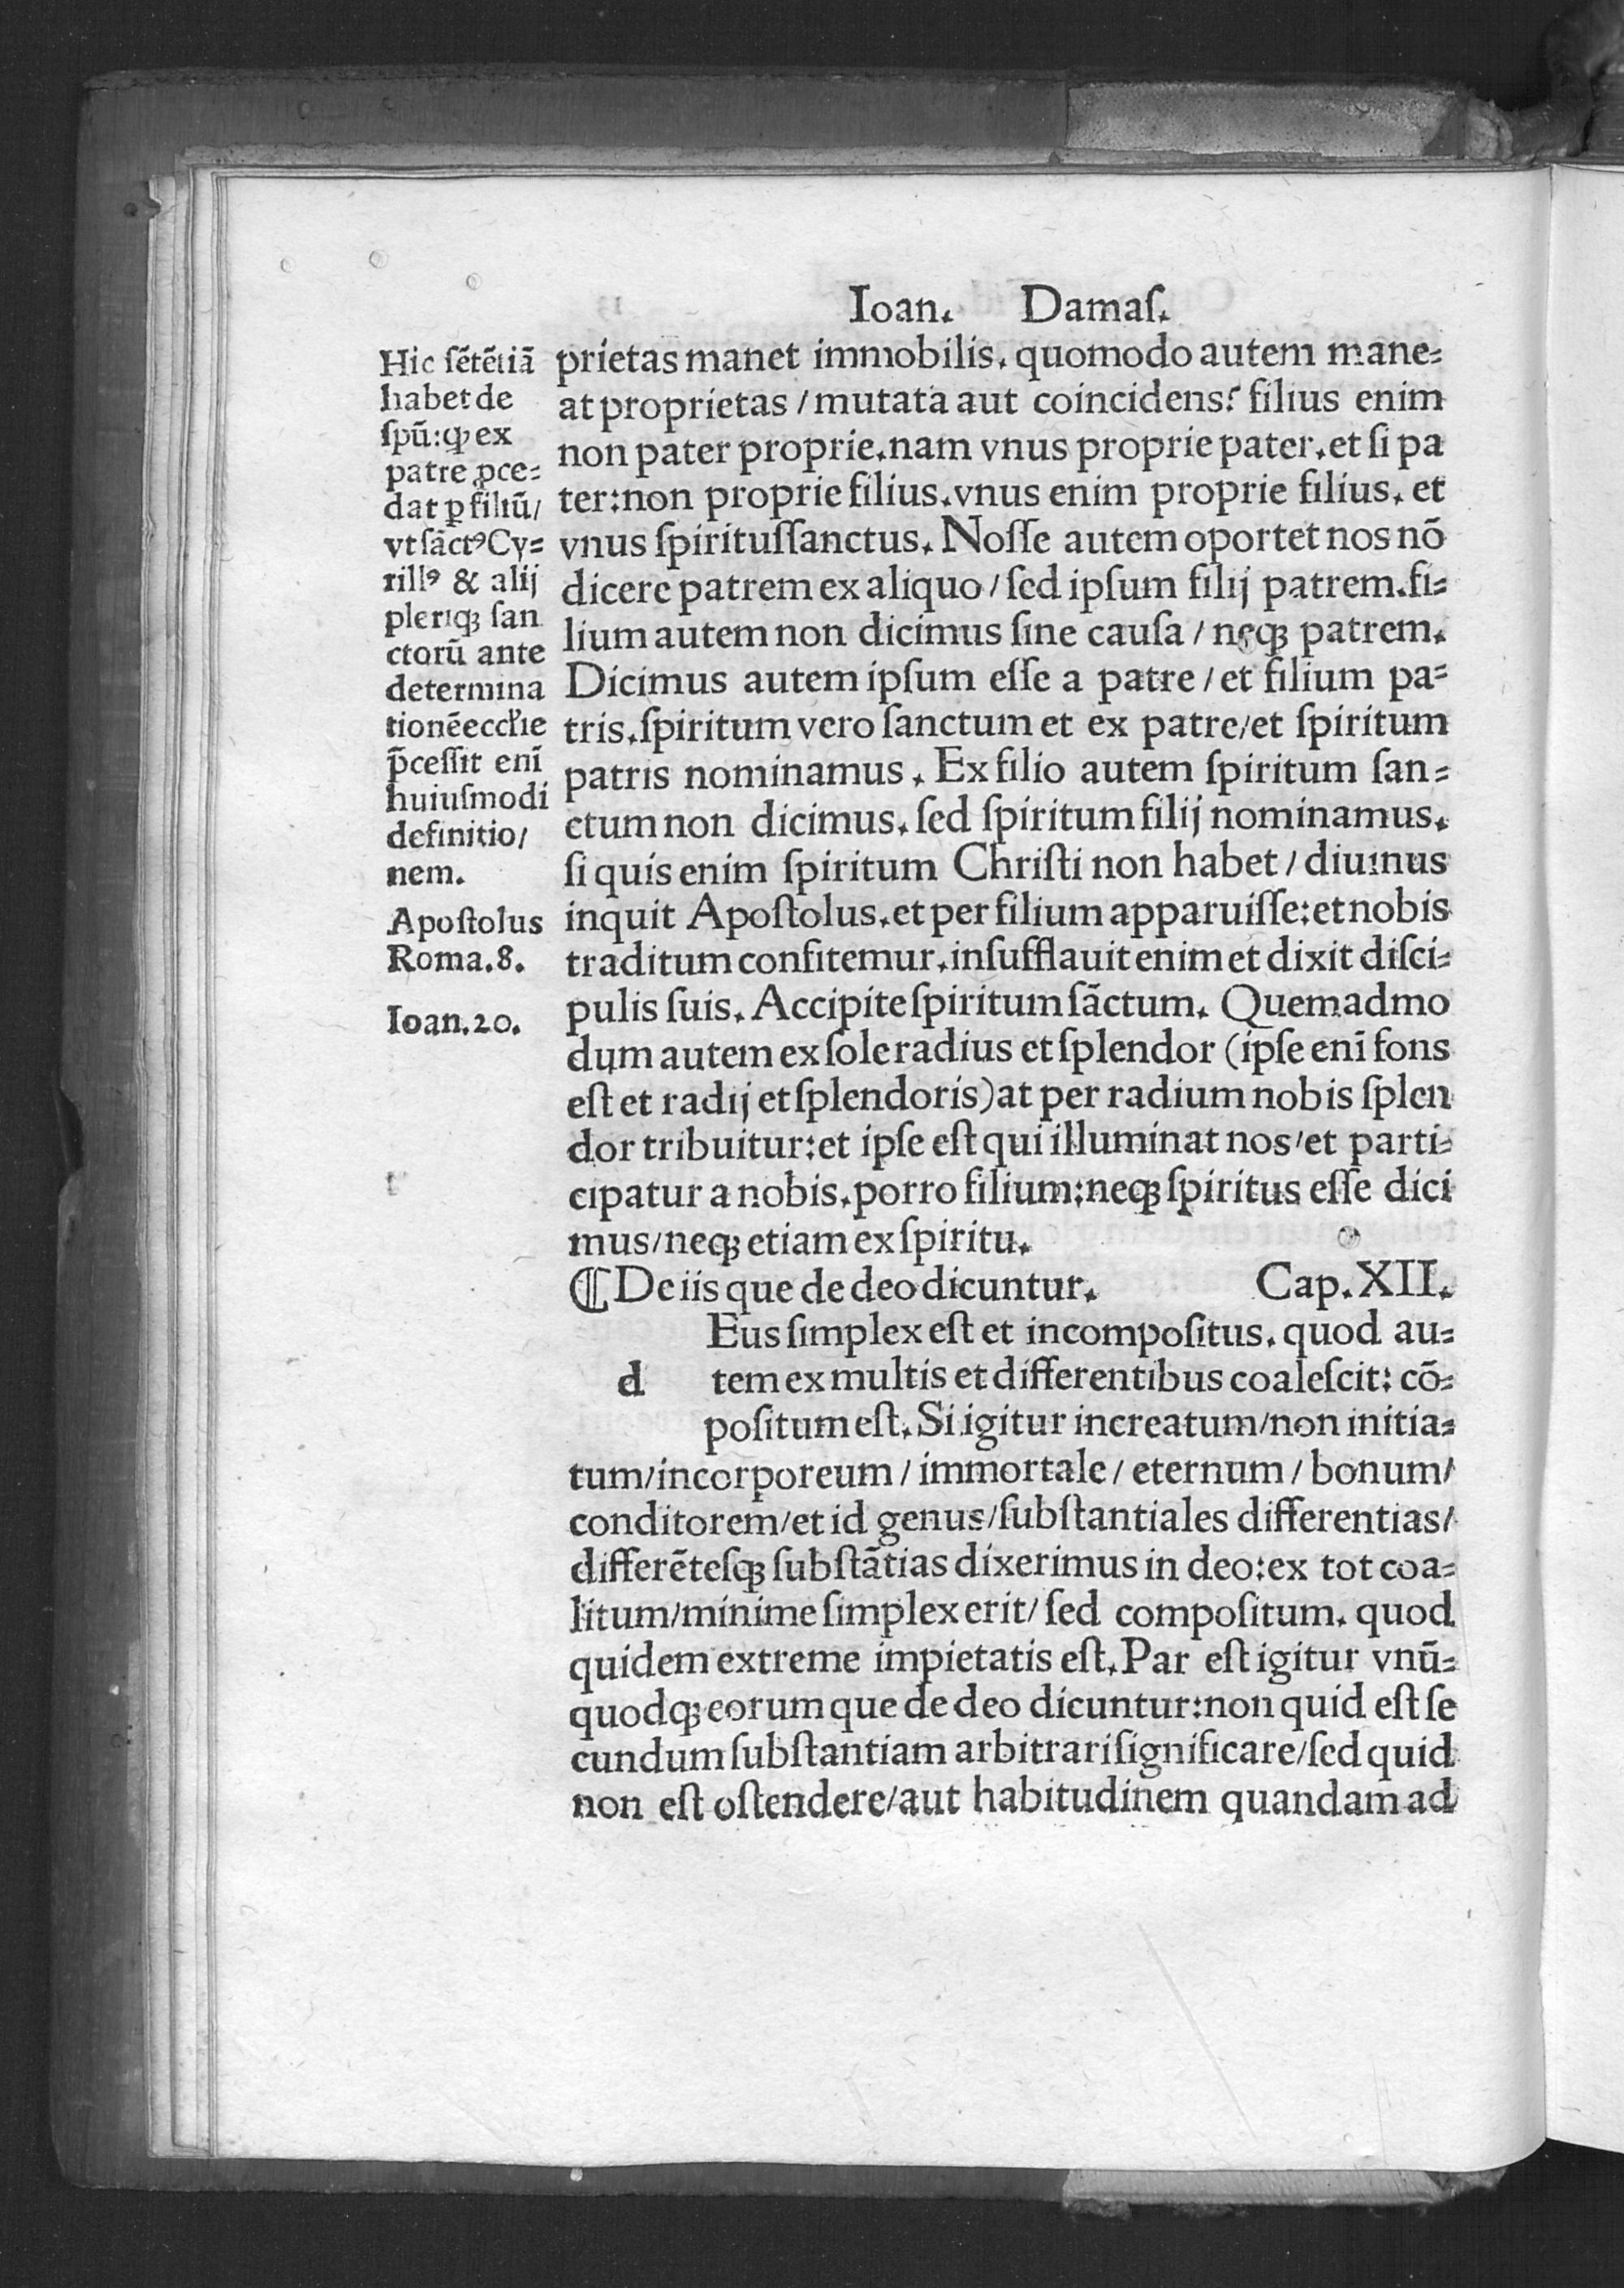 Ioan. Damaſ.
prietas manet immobilis. quomodo autem mane=
at proprietas / mutata aut coincidens? filius enim
non pater proprie. nam vnus proprie pater. et ſi pa
ter: non proprie filius. vnus enim proprie filius. et
vnus ſpirituſſanctus. Noſſe autem oportet nos nō
dicere patrem ex aliquo / ſed ipſum filij patrem. fi=
lium autem non dicimus ſine cauſa / neqꝫ patrem.
Dicimus autem ipſum eſſe a patre / et filium pa=
tris. ſpiritum vero ſanctum et ex patre / et ſpiritum
patris nominamus. Ex filio autem ſpiritum ſan=
ctum non dicimus. ſed ſpiritum filij nominamus.
ſi quis enim ſpiritum Chriſti non habet / diuinus
inquit Apoſtolus. et per filium apparuiſſe: et nobis
traditum confitemur. inſufflauit enim et dixit diſci=
pulis ſuis. Accipite ſpiritum ſāctum. Quemadmo
dum autem ex ſole radius et ſplendor (ipſe eni̅ fons
eſt et radij et ſplendoris) at per radium nobis ſplen
dor tribuitur: et ipſe eſt qui illuminat nos / et parti=
cipatur a nobis. porro filium: neqꝫ ſpiritus eſſe dici
mus / neqꝫ etiam ex ſpiritu.
Hic ſētētiā
habet de
ſpū: ꝙ ex
patre ꝓce=
dat ꝑ filiū /
vt ſāctꝰ Cy=
rillꝰ & alij
pleriqꝫ ſan
ctorū ante
determina
tionē eccl'ie
p̄ceſſit eni̅
huiuſmodi
definitio /
nem.
Apoſtolus
Roma. 8.
Ioan. 20.
⸿ De iis que de deo dicuntur. Cap. XII.
d Eus ſimplex eſt et incompoſitus. quod au=
tem ex multis et differentibus coaleſcit: cō=
poſitum eſt. Si igitur increatum / non initia=
tum / incorporeum / immortale / eternum / bonum /
conditorem / et id genus / ſubſtantiales differentias /
differēteſqꝫ ſubſtātias dixerimus in deo: ex tot coa=
litum / minime ſimplex erit / ſed compoſitum. quod
quidem extreme impietatis eſt. Par eſt igitur vnū=
quodqꝫ eorum que de deo dicuntur: non quid eſt ſe
cundum ſubſtantiam arbitrari ſignificare / ſed quid
non eſt oſtendere / aut habitudinem quandam ad